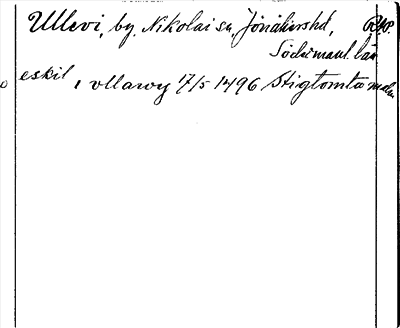 Ullevi, by, Nikolai sn, Jönåkershd,
Södermanl. län
eskil i vllawy 17/5 1496 Stigtomta malm